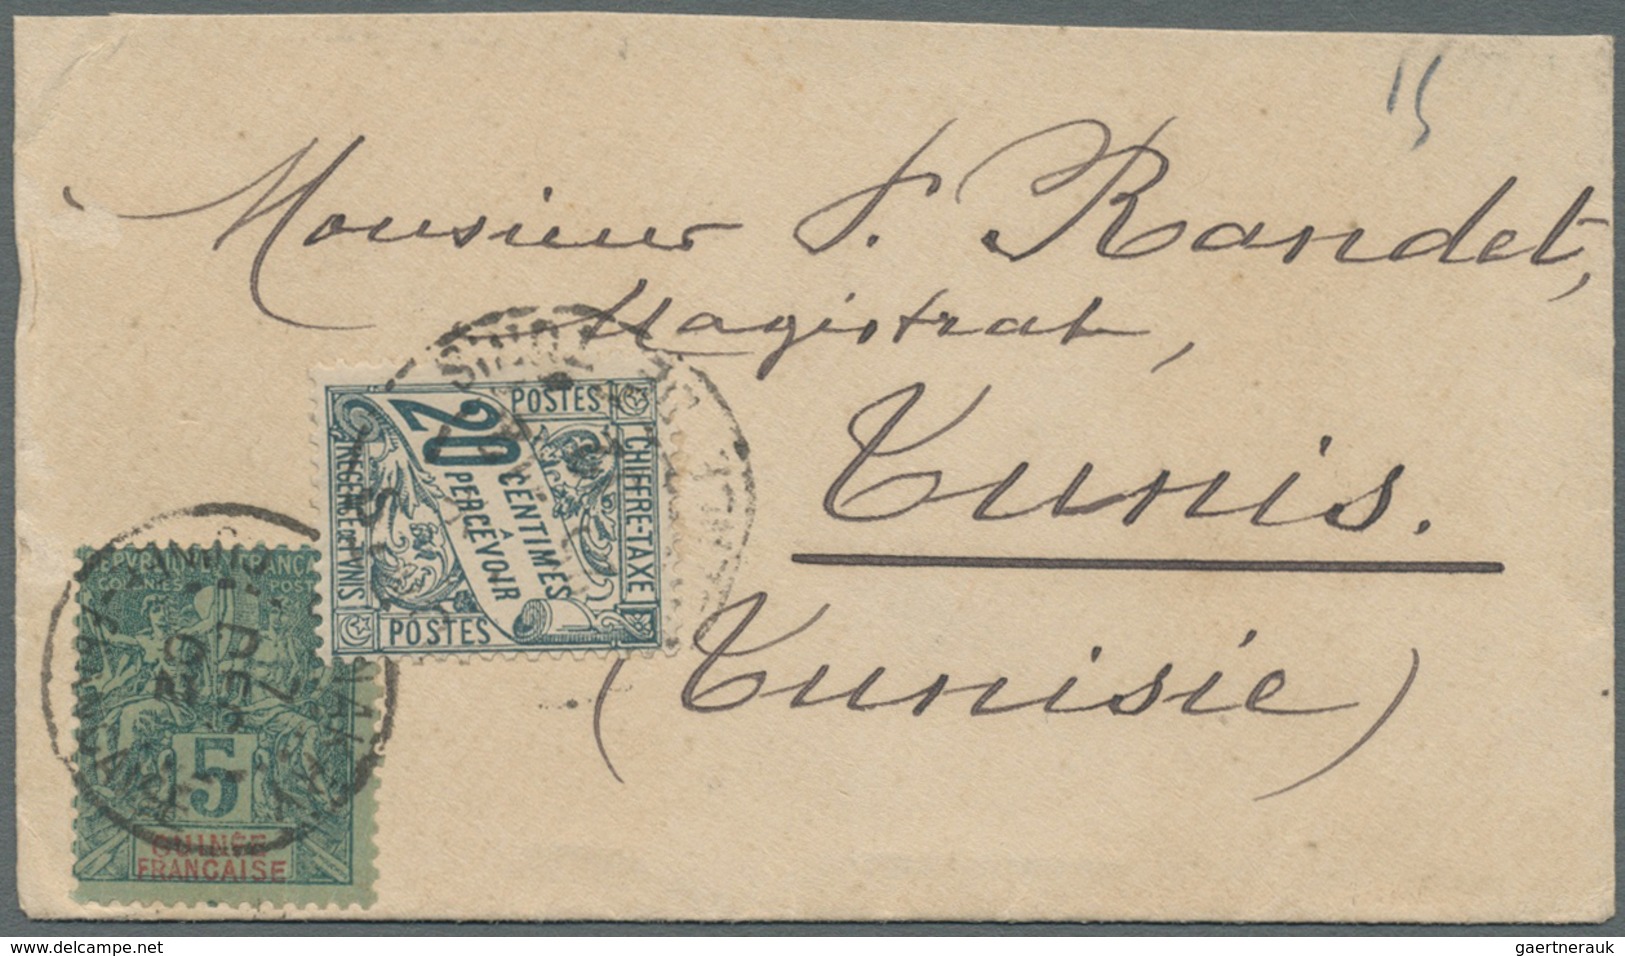 15
Monsieur P. Randet,
Magistrat,
Tunis.
(Tunisie)
TUNIS
POSTES
CHIFFRE-TAXE
20
CENTIMES
À
PERCEVOIR
RÉGENCE DE TUNIS
POSTES
RÉPUBLIQUE FRANÇAISE
COLONIES POSTES
5
GUINÉE
FRANÇAISE
CONAKRY
DEC
gaertnerauk
delcampe.net